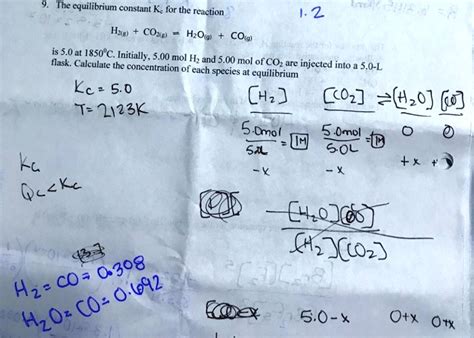 9. The equilibrium constant K, for the reaction
1.2
H₂(g) + CO₂(g) = H₂O(g) + CO(g)
is 5.0 at 1850°C. Initially, 5.00 mol H₂ and 5.00 mol of CO₂ are injected into a 5.0-L
flask. Calculate the concentration of each species at equilibrium
Kc = 5.0
T= 2123K
[H₂] [CO₂] ⇌ [H₂O] [CO]
5.0mol = 1M 5.0mol = 1M 0 0
5.0L
-x -x +x +
Kc
Qc<Kc
[H₂O][CO]
[H₂][CO₂]
H₂= CO= 0.308
H₂O= CO= 0.692
5.0-x 0+x 0+x